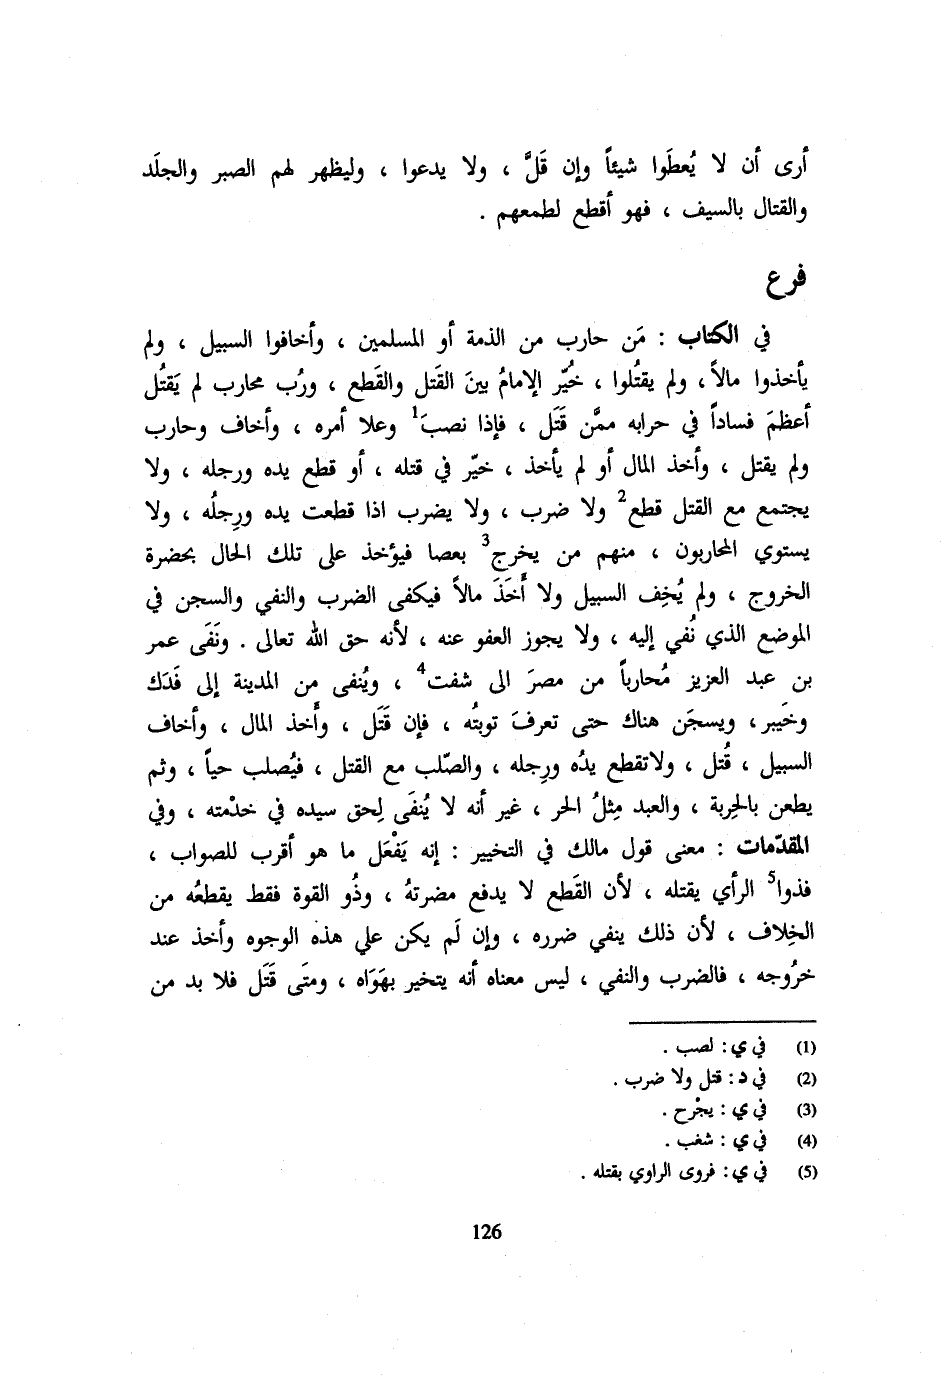 أرى أن لا يُعطَوا شيئاً وإن قَلَّ ، ولا يدعوا ، وليظهر لهم الصبر والجلَد
والقتال بالسيف ، فهو أقطع لطمعهم .
فرع
في الكتاب : مَن حارب من الذمة أو المسلمين ، وأخافوا السبيل ، ولم
يأخذوا مالاً ، ولم يقتُلوا ، خُيّر الإمامُ بينَ القَتل والقَطع ، ورُب محارب لم يَقتُل
أعظمَ فساداً في حرابه ممَّن قَتَل ، فإذا نصبَ1 وعلا أمره ، وأخاف وحارب
ولم يقتل ، وأخذ المال أو لم يأخذ ، خيّر في قتله ، أو قطع يده ورجله ، ولا
يجتمع مع القتل قطع2 ولا ضرب ، ولا يضرب اذا قطعت يده ورِجلُه ، ولا
يستوي المحاربون ، منهم من يخرج3 بعصا فيؤخذ على تلك الحال بحضرة
الخروج ، ولم يُخِف السبيل ولا أَخَذَ مالاً فيكفى الضرب والنفي والسجن في
الموضع الذي نُفي إليه ، ولا يجوز العفو عنه ، لأنه حق الله تعالى . ونَفَى عمر
بن عبد العزيز مُحارباً من مصرَ الى شفت4 ، ويُنفى مِن المدينة إلى فَدَك
وخَيبر ، ويسجَن هناك حتى تعرفَ توبتُه ، فإن قَتَل ، وأَخذ المال ، وأخاف
السبيل ، قُتل ، ولاتقطع يدُه ورِجله ، والصّلب مع القتل ، فيُصلب حياً ، وثم
يطعن بالحِربة ، والعبد مِثلُ الحر ، غير أنه لا يُنفَى لِحق سيده في خدْمته ، وفي
المقدّمات : معنى قول مالك في التخيير : إنه يَفْعَل ما هو أقرب للصواب ،
فذوا5 الرأي يقتله ، لأن القَطع لا يدفع مضرتهُ ، وذُو القوة فقط يقطعُه من
الخِلاف ، لأن ذلك ينفي ضرره ، وإن لَم يكن علي هذه الوجوه وأخذ عند
خرُوجه ، فالضرب والنفي ، ليس معناه أنه يتخير بهَوَاه ، ومتَى قَتَل فلا بد من
(1) في ي : لصب .
(2) في د : قتل ولا ضرب .
(3) في ي : يجْرح .
(4) في ي : شغب .
(5) في ي : فروى الراوي بقتله .
126